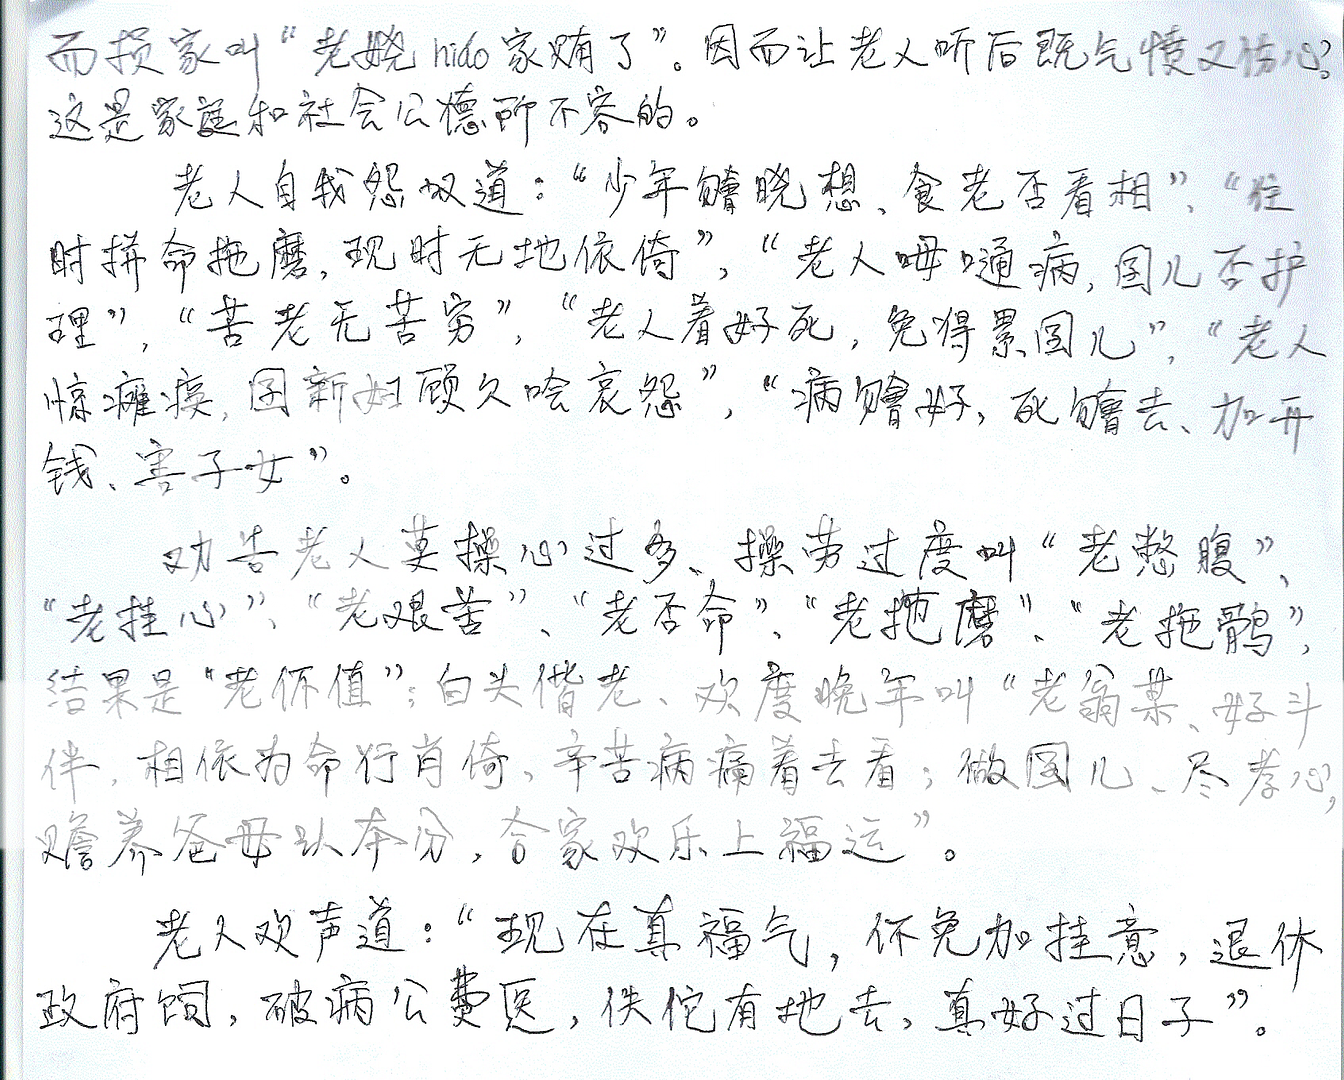 而损家叫“老娆hido家贿了”。因而让老人听后既气愤又伤心。
这是家庭和社会公德所不容的。
老人自我怨叹道：“少年𣍐晓想、食老否看相”，“往
时拼命拖磨，现时无地依倚”，“老人毋嗵病，囝儿否护
理”，“苦老无苦穷”，“老人着好死，免得累囝儿”，“老人
惊瘫痪，囝新妇顾久唅哀怨”，“病𣍐好，死𣍐去、加开
钱、害子女”。
劝告老人莫操心过多、操劳过度叫“老憋腹”、
“老挂心”、“老艰苦”、“老否命”、“老拖磨”、“老拖鹘”，
结果是“老伓值”；白头偕老、欢度晚年叫“老翁某、好斗
伴，相依为命行肖倚、辛苦病痛着去看；做囝儿、尽孝心，
赡养爸母认本分，合家欢乐上福运”。
老人欢声道：“现在真福气，伓免加挂意，退休
政府饲，破病公费医，佚佗有地去，真好过日子”。